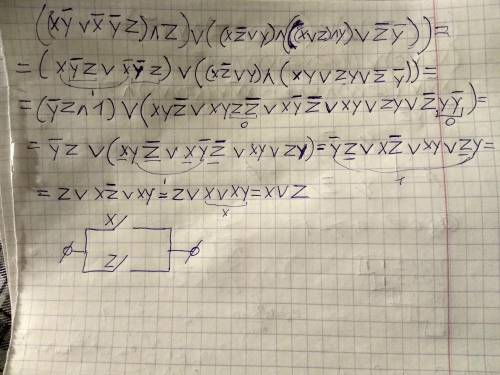 ((xȳ ∨ x̄ȳz) ∧ z) ∨ ((xz̄ ∨ y) ∧ (((x ∨ z) ∧ y) ∨ z̄ȳ)) =
= (xȳz ∨ x̄ȳz) ∨ ((xz̄ ∨ y) ∧ (xy ∨ zy ∨ z̄ȳ)) =
1
= (ȳz ∧ 1) ∨ (xyz̄ ∨ xyzz̄ ∨ xȳz̄ ∨ xy ∨ zy ∨ z̄yȳ) =
0 0
= ȳz ∨ (xyz̄ ∨ xȳz̄ ∨ xy ∨ zy) = ȳz ∨ xz̄ ∨ xy ∨ zy =
1 1
= z ∨ xz̄ ∨ xy = z ∨ x ∨ xy = x ∨ z
x
x
z